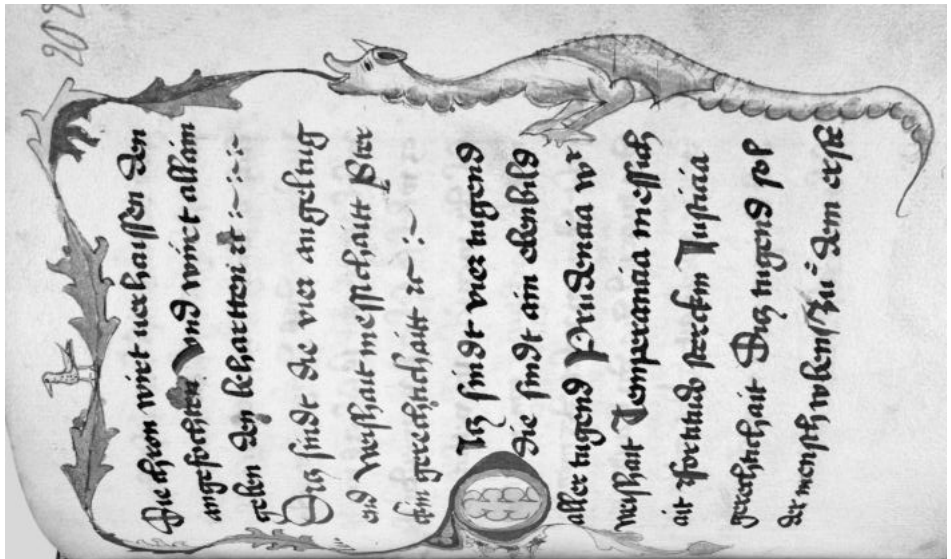 202
Die chron wirt uerhaissen den
angefochten Vnd wirt allain
geben den behartten
Ditz sindt die vier angeltug
end weishait messichaitt Ster
ckin gerechtichaitt ꝛc
DItz sindt vier tugend
die sindt ain ebenbild
aller tugend Prudencia
weishait Temperancia messich
ait Fortitudo sterckin Justicia
gerechtichait Ditz tugend sol
der mensch zů dem erste